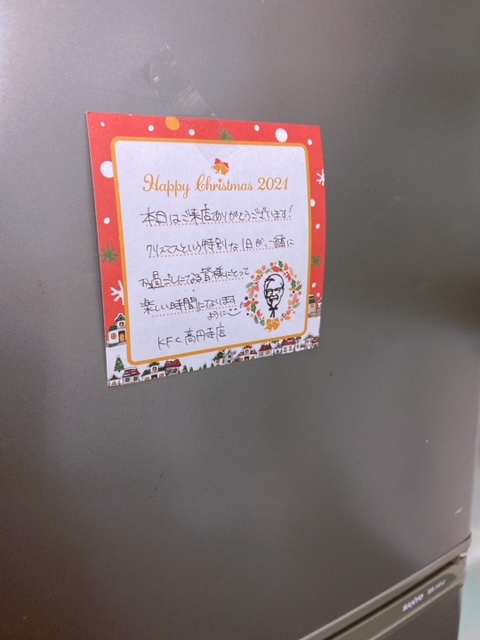 Happy Christmas 2021
本日はご来店ありがとうございます!
クリスマスという特別な1日が、一緒に
お過ごしになる皆様にとって
楽しい時間になります
ように
KFC 高円寺店
SANYO